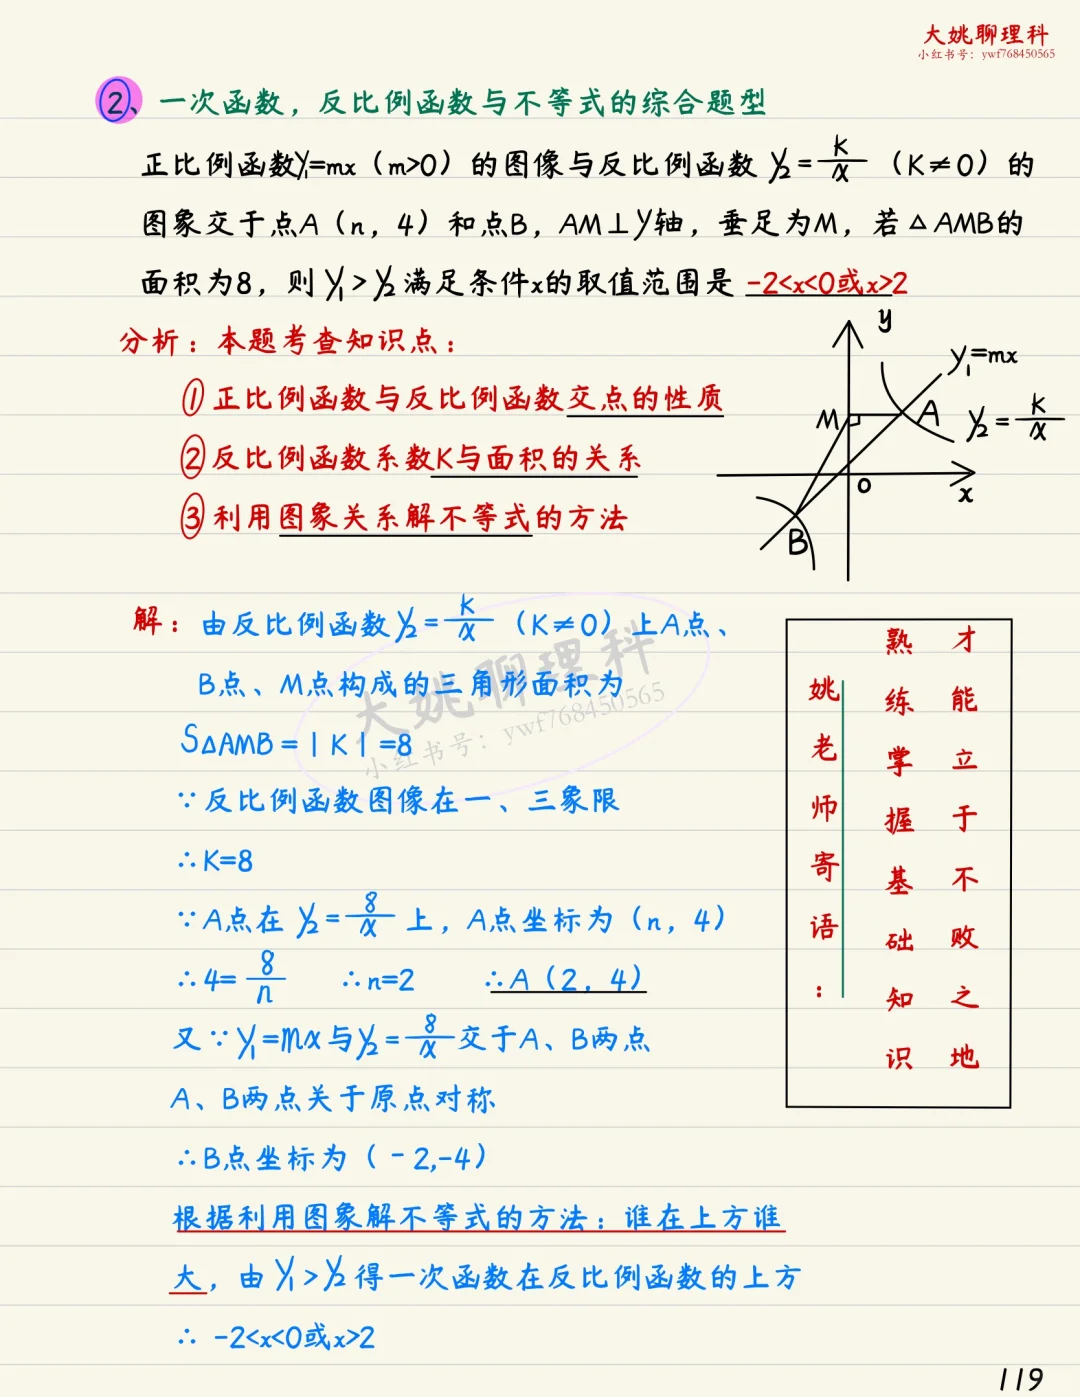 大姚聊理科
小红书号：ywf768450565
②、一次函数，反比例函数与不等式的综合题型
正比例函数y₁=mx（m>0）的图像与反比例函数 y₂=K/x（K≠0）的
图象交于点A（n，4）和点B，AM⊥y轴，垂足为M，若△AMB的
面积为8，则 y₁>y₂满足条件x的取值范围是 -2<x<0或x>2
分析：本题考查知识点：
①正比例函数与反比例函数交点的性质
②反比例函数系数K与面积的关系
③利用图象关系解不等式的方法
y
y₁=mx
M
A
y₂=K/x
O
x
B
解：由反比例函数y₂=K/x（K≠0）上A点、
B点、M点构成的三角形面积为
S△AMB=|K|=8
∵反比例函数图像在一、三象限
∴K=8
∵A点在 y₂=8/x 上，A点坐标为（n，4）
∴4=8/n ∴n=2 ∴A（2，4）
又∵y₁=mx与y₂=8/x交于A、B两点
A、B两点关于原点对称
∴B点坐标为（-2,-4）
根据利用图象解不等式的方法：谁在上方谁
大，由 y₁>y₂得一次函数在反比例函数的上方
∴ -2<x<0或x>2
姚老师寄语：
熟练掌握基础知识
才能立于不败之地
大姚聊理科
小红书号：ywf768450565
119